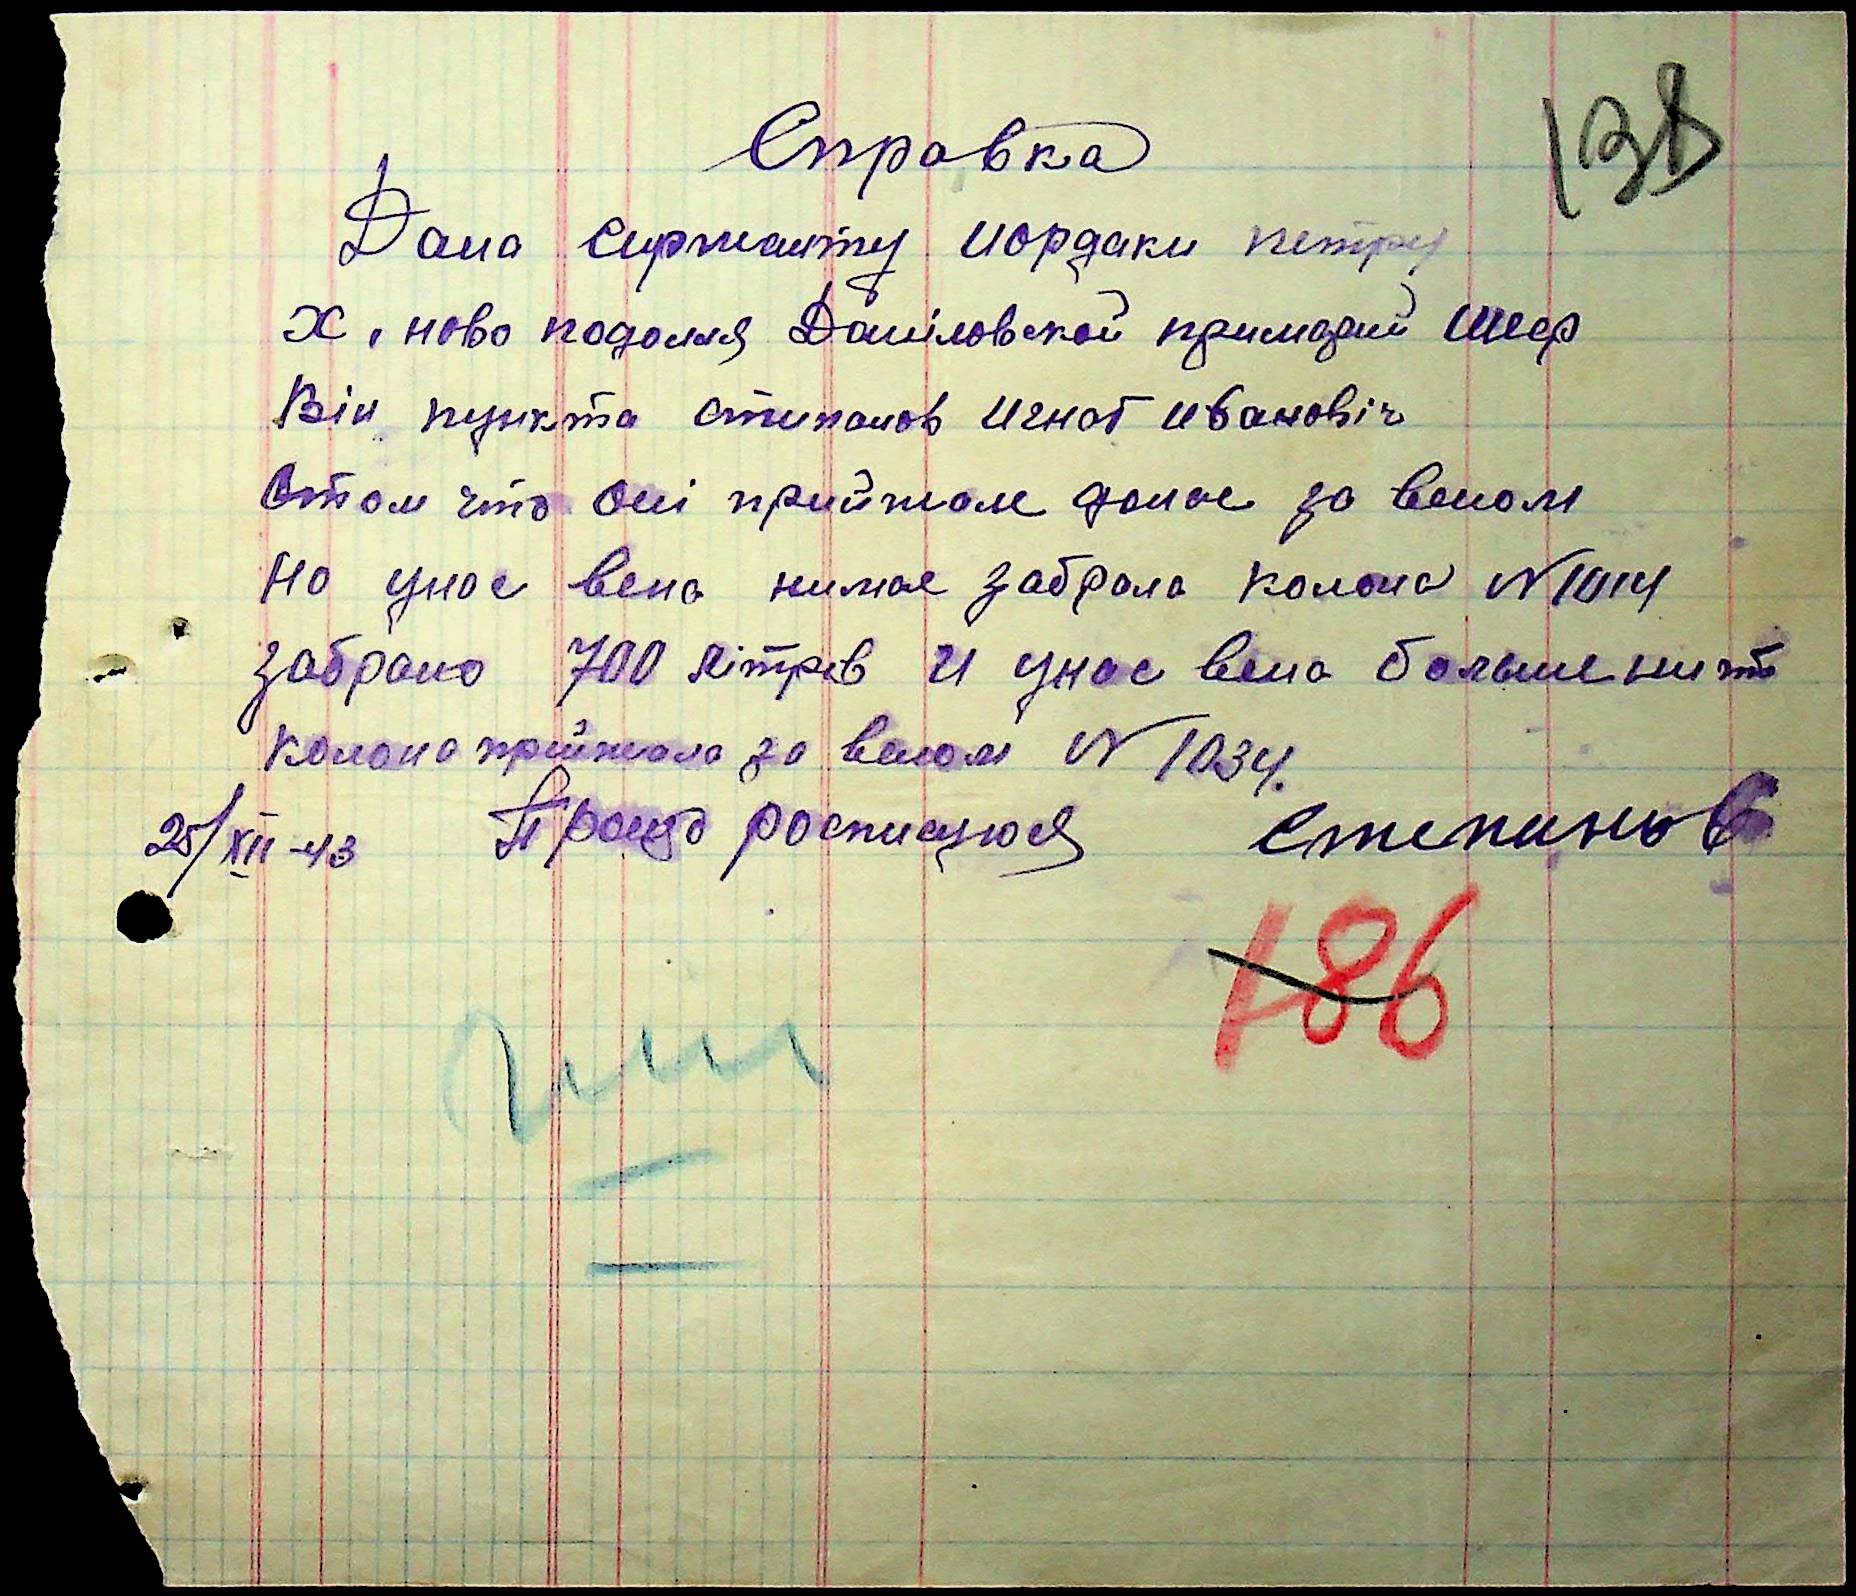 138
Справка
Дана сиржанту иордаки петру
х. ново подолля Даніловской примарий Шеф
Він пункта стипанов Игнат ивановіч
Отом что оні прийжале донас за веном
Но унас вена нимае забрала колона N 1014
забрано 700 літров и унас вена больше нит
колона прийжала за веном N 1034.
25/XII-43 росписуюся Степанов
186